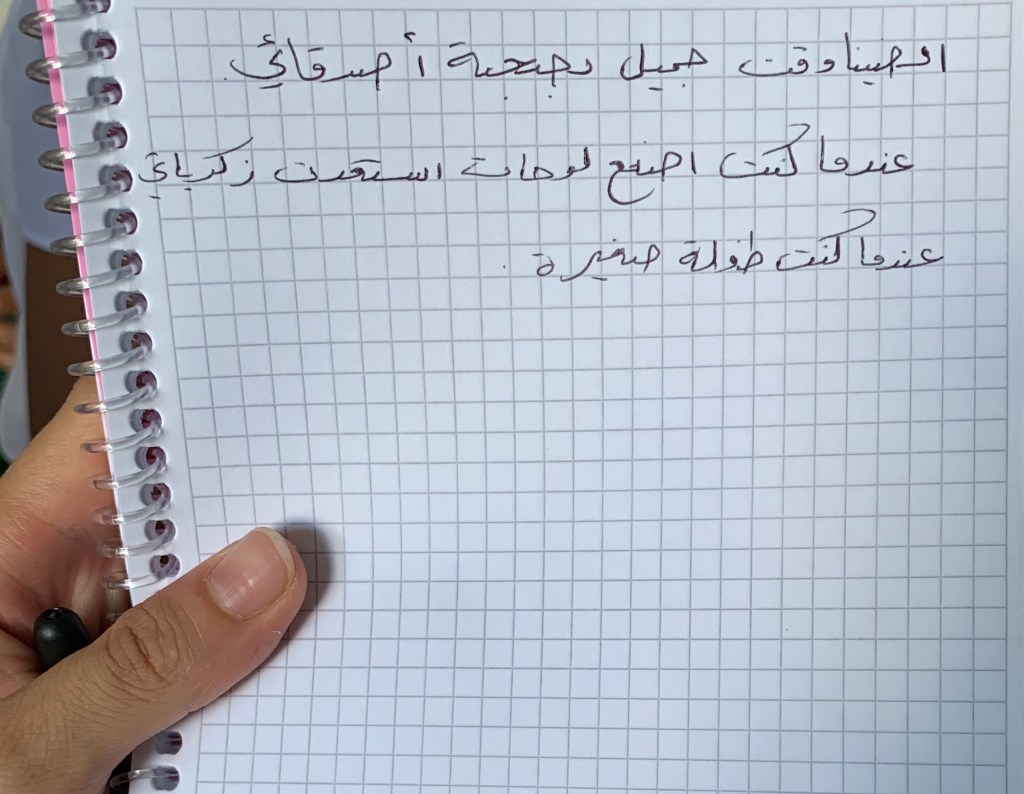 امضينا وقت جميل بصحبة أصدقائي.
عندما كنت اصنع لوحات استعدت زكرياتي
عندما كنت طفلة صغيرة.